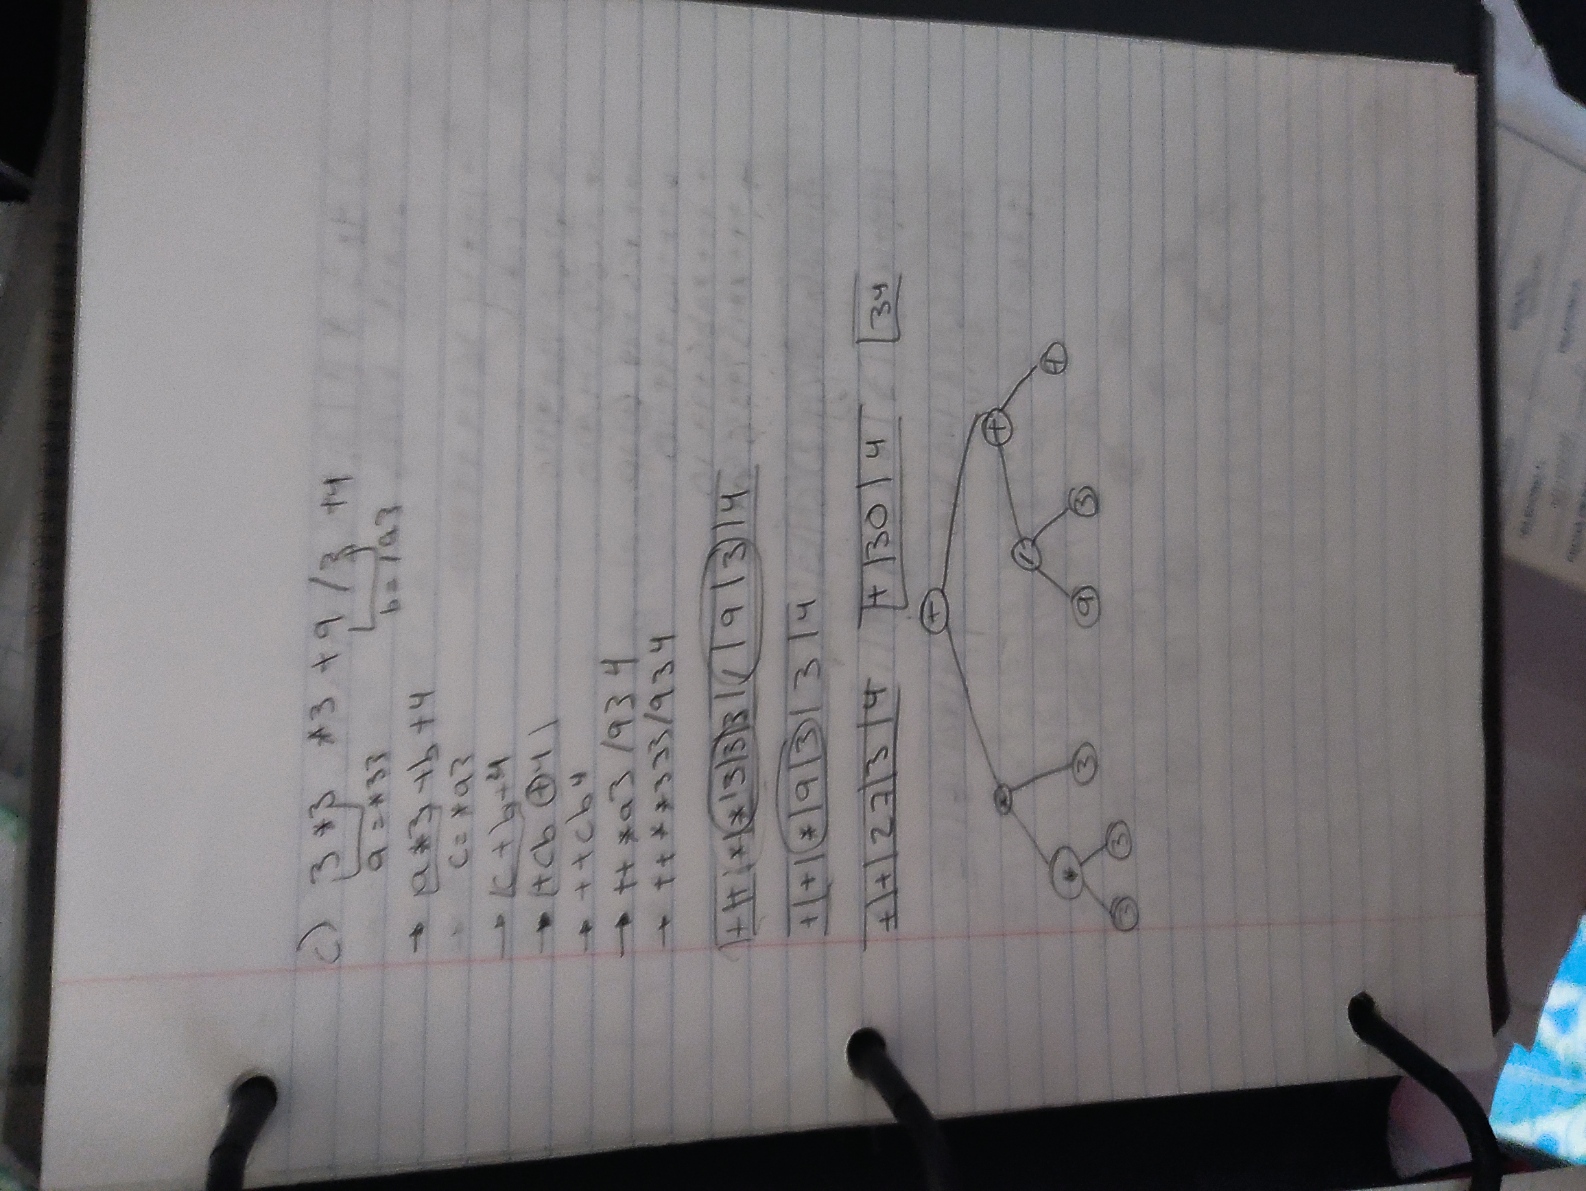 c) 3 * 3 * 3 + 9 / 3 + 4
a = * 33
b = / 93
→ a * 3 + b + 4
c = * a3
→ c + b + 4
→ + cb + 4
→ + + cb 4
→ + + * a3 / 93 4
→ + + * * 333 / 93 4
+ | + | * | * | 3 | 3 | 3 | / | 9 | 3 | 4
+ | + | * | 9 | 3 | 3 | 4
+ | + | 27 | 3 | 4 + | 30 | 4 34
+
* +
* 3 / 4
3 3 9 3